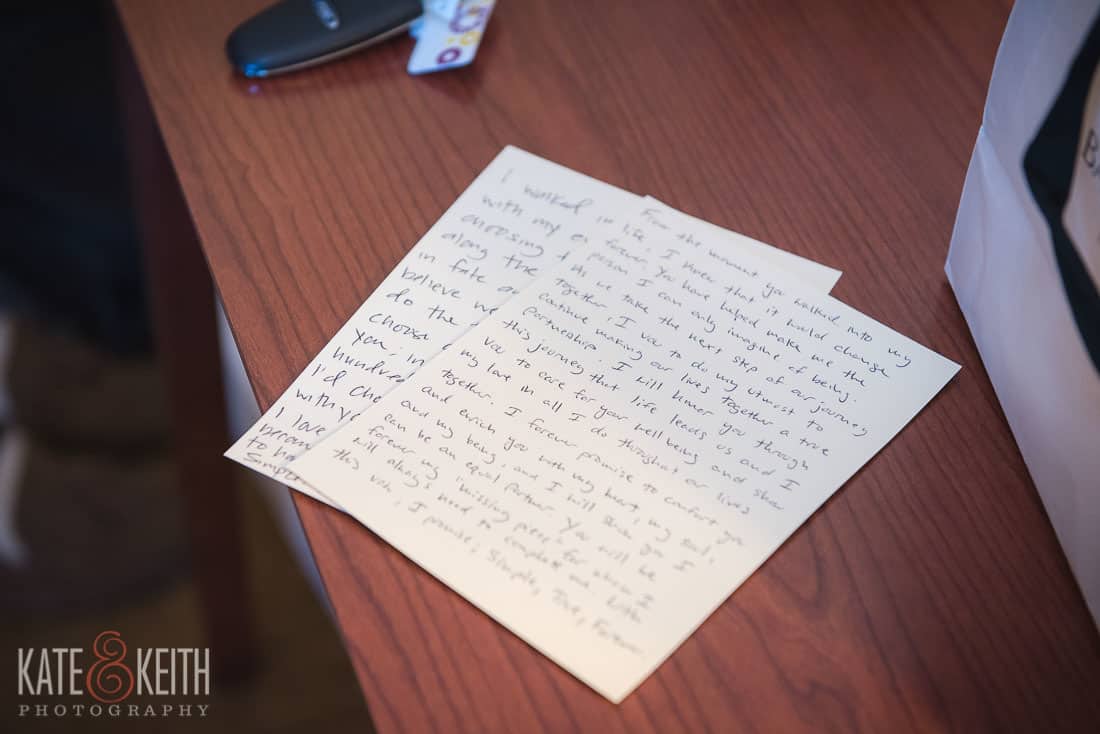 I walked in
with my e
choosing
along the
in fate a
believe we
do the
choose
you; in
hundred
I'd cho
with yo
I love
becau
to ha
Simple
From the moment you walked into my
life, I knew that it would change
forever. You have helped make me the
person I can only imagine of being.
As we take the next step of our journey
together, I vow to do my utmost to
continue making our lives together a true
partnership. I will honor you through
this journey that life leads us and I
vow to care for your well being and show
my love in all I do throughout our lives
together. I forever promise to comfort you
and enrich you with my heart, my soul,
and my being, and I will show you I
can be an equal partner. You will be
forever my "missing piece" for whom I
will always need to complete me. With
this vow, I promise; Simple, True, Forever.
KATE & KEITH
PHOTOGRAPHY